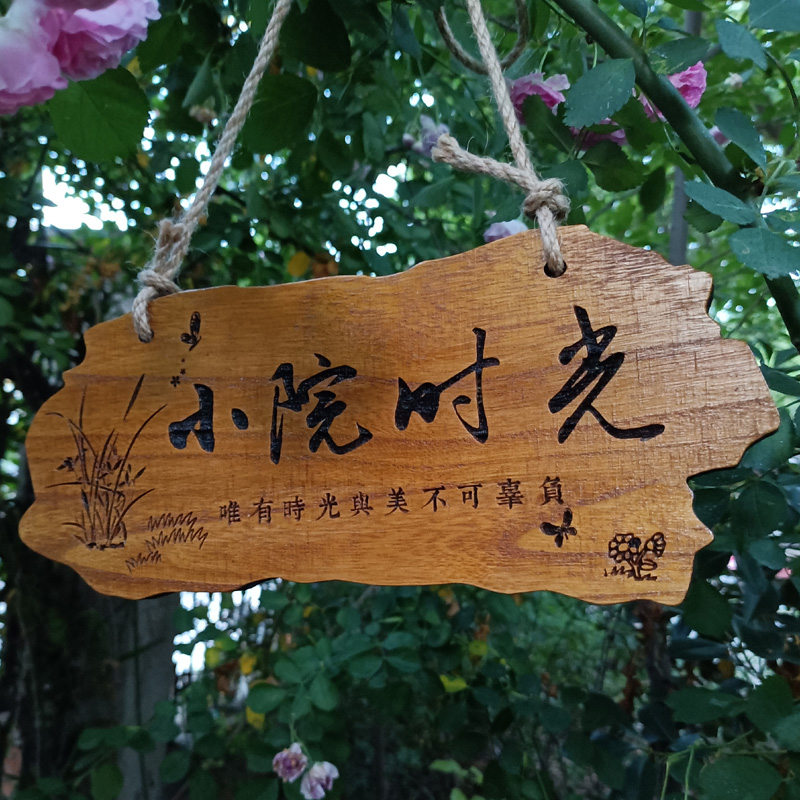 小院时光
唯有時光與美不可辜負